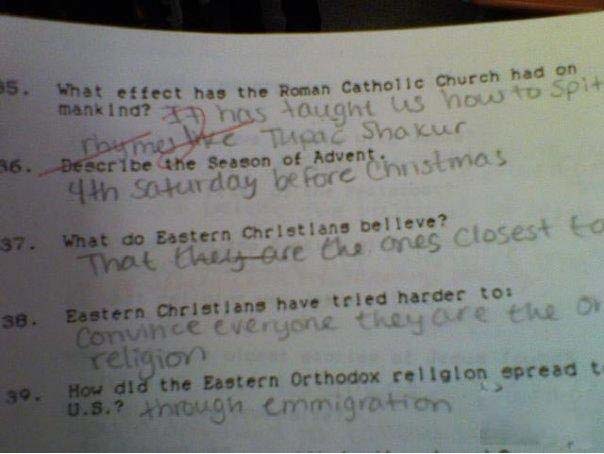 35. What effect has the Roman Catholic Church had on
mankind? It has taught us how to Spit
rhymes like Tupac Shakur
36. Describe the Season of Advent.
4th Saturday before Christmas
37. What do Eastern Christians believe?
That they are the ones closest to
38. Eastern Christians have tried harder to:
Convince everyone they are the
religion
39. How did the Eastern Orthodox religion spread
U.S.? through emmigration